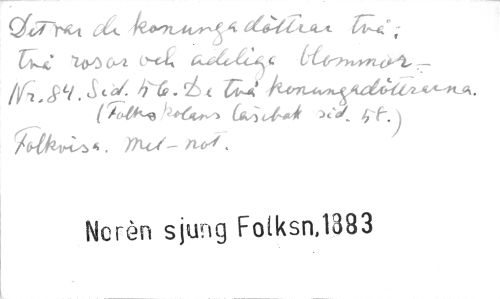 Det var de konungadöttrar två;
två rosor och adeliga blommor –
Nr. 84. Sid. 56. De två konungadöttrarna.
(Folkskolans läsebok sid. 58.)
Folkvisa. Mel-not.
Norèn sjung Folksn, 1883